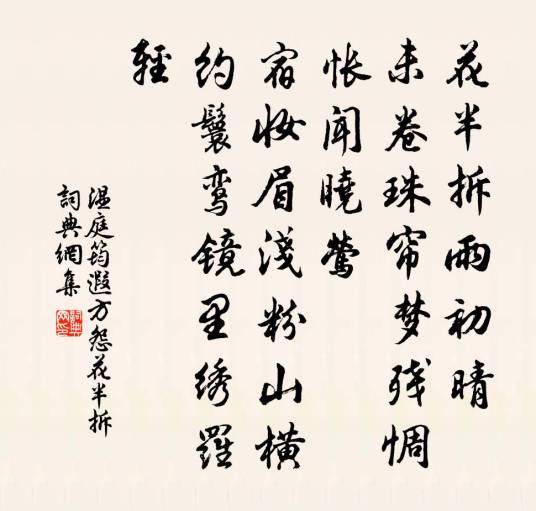 花半拆雨初晴
未卷珠帘梦残惆
怅闻曉鶯
宿妆眉淺粉山横
约鬟鸾镜里绣羅
輕
温庭筠遐方怨花半拆
詞典網集